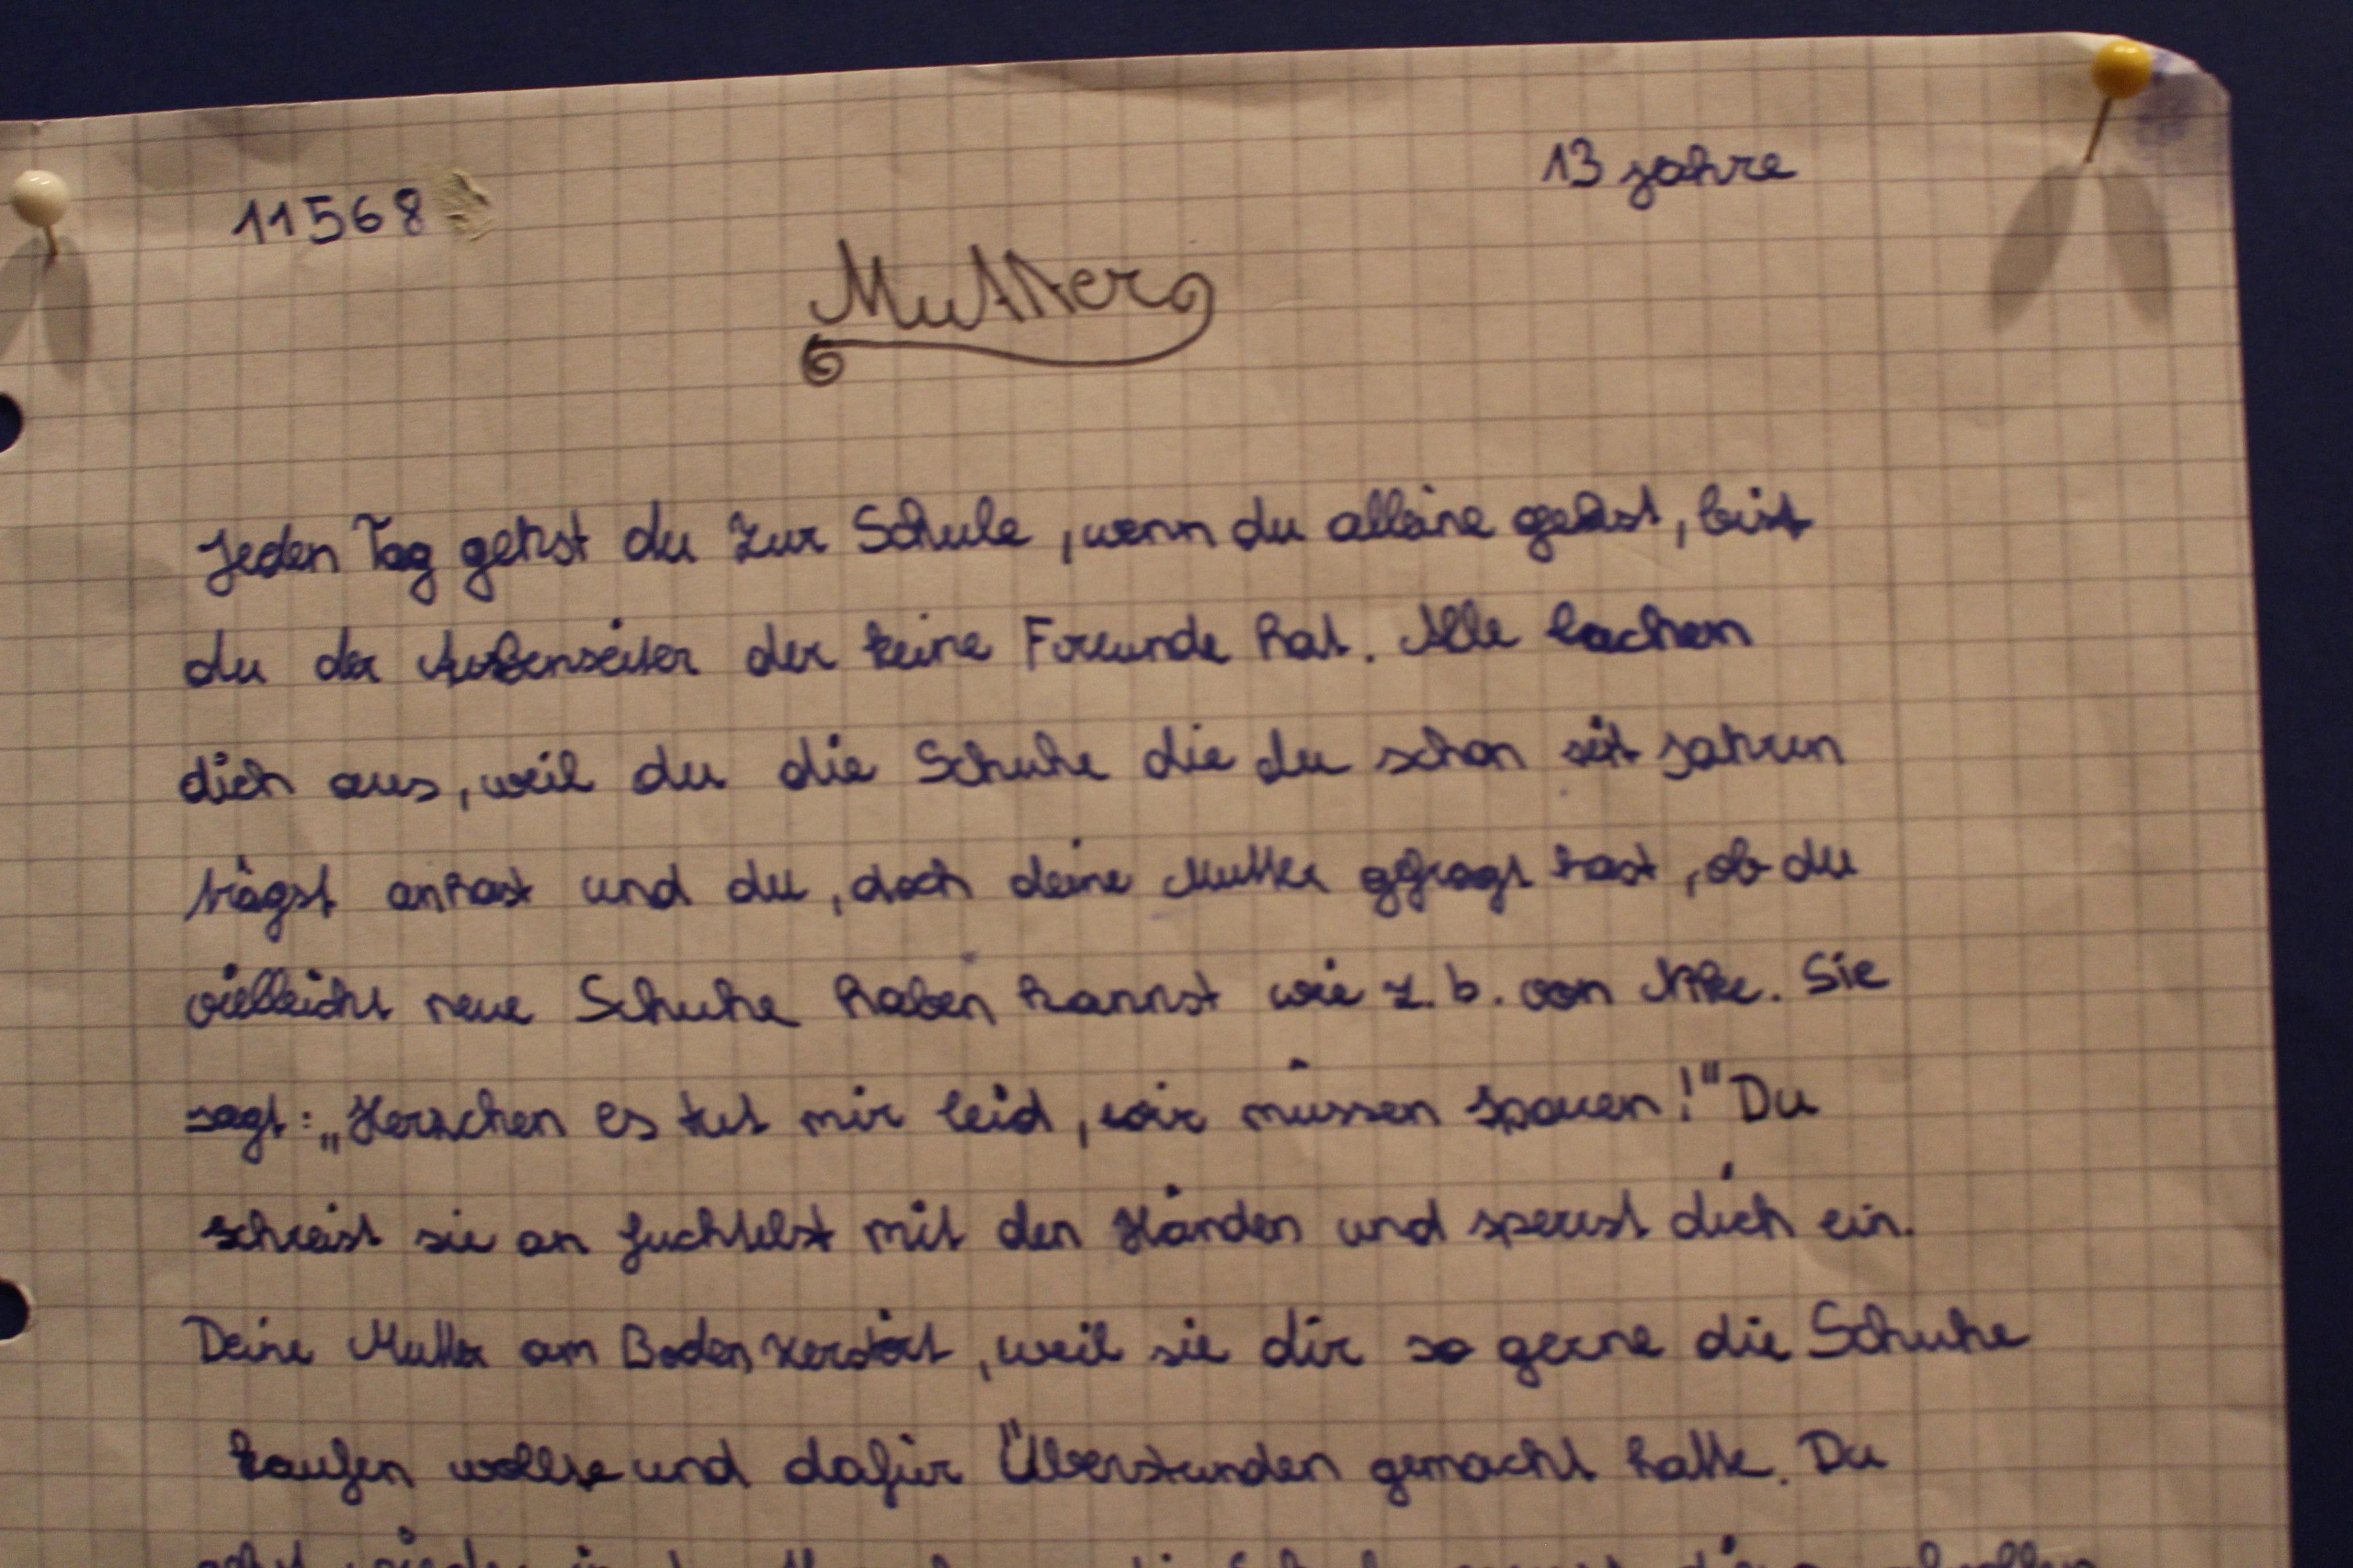 11568
13 jahre
Mutter
Jeden Tag gehst du zur Schule, wenn du alleine gehst, bist
du der Außenseiter der keine Freunde hat. Alle lachen
dich aus, weil du die Schuhe die du schon seit Jahren
trägst anhast und du, doch deine Mutter gefragt hast, ob du
vielleicht neue Schuhe haben kannst wie z.b. von Nike. Sie
sagt: „Herzchen es tut mir leid, wir müssen sparen!" Du
schreist sie an fuchtelst mit den Händen und sperrst dich ein.
Deine Mutter am Boden zerstört, weil sie dir so gerne die Schuhe
kaufen wollte und dafür Überstunden gemacht hatte. Du